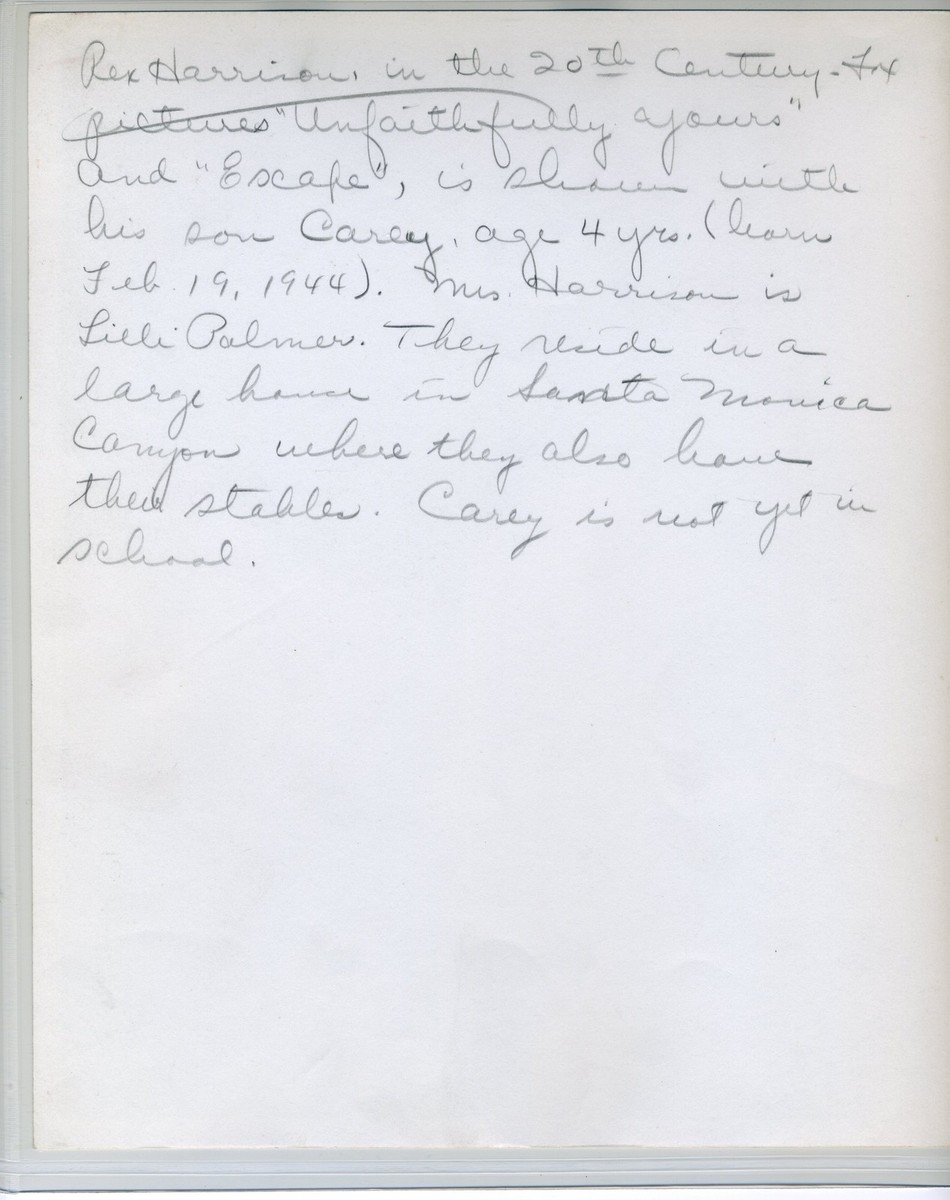 Rex Harrison, in the 20th Century-Fox
pictures "Unfaithfully Yours"
and "Escape", is shown with
his son Carey, age 4 yrs. (born
Feb. 19, 1944). Mrs. Harrison is
Lilli Palmer. They reside in a
large house in Santa Monica
Canyon where they also have
their stables. Carey is not yet in
school.